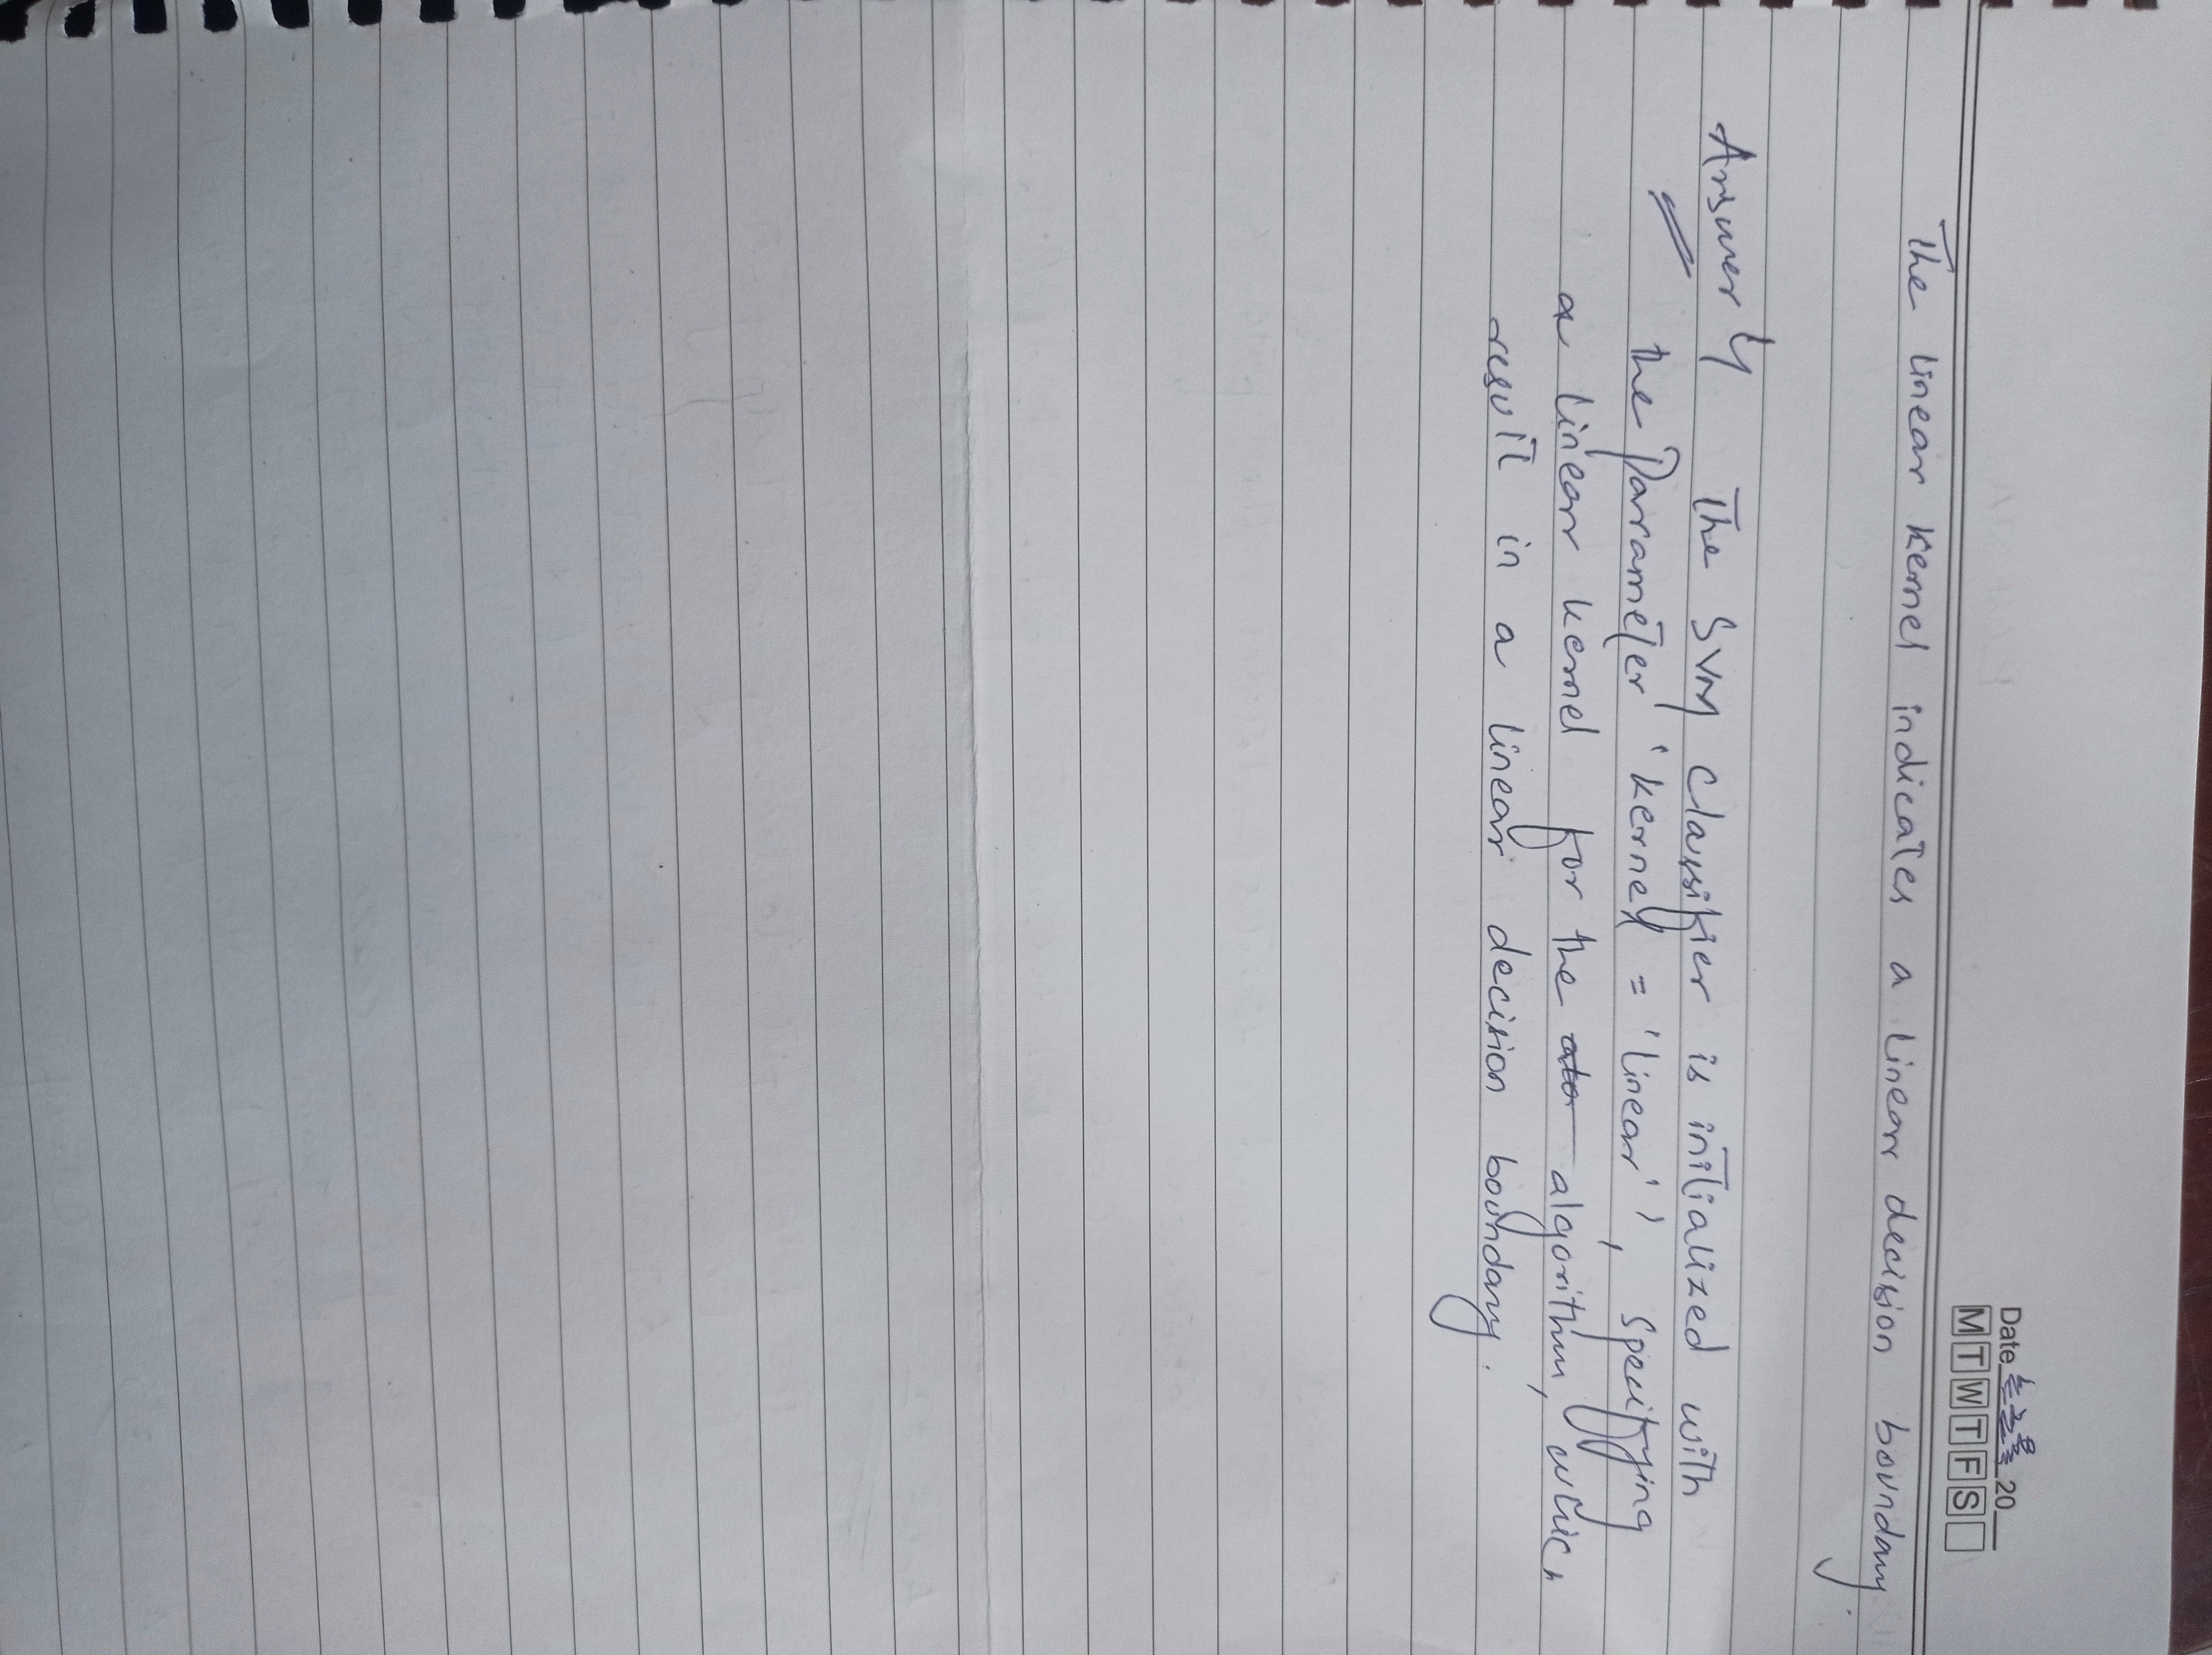 Date 20
M T W T F S
The linear kernel indicates a linear decision boundary.
Answer 4 The SVM classifier is initialized with
the Parameter 'kernel = 'linear'', Specifying
a linear kernel for the algorithm, which
result in a linear decision boundary.